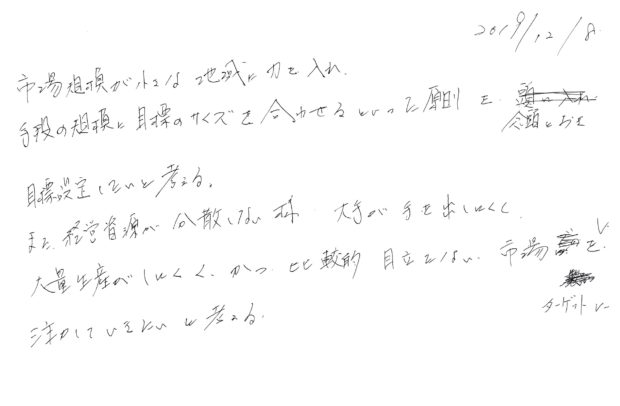 2019/12/8
市場規模が小さな地域に力を入れ、
手段の規模に目標のサイズを合わせるといった原則を、
念頭におき
目標設定したいと考える。
また、経営資源が分散しない様、大手が手を出しにくく、
大量生産がしにくく、かつ比較的目立たない、市場を
ターゲットに
注力していきたいと考える。